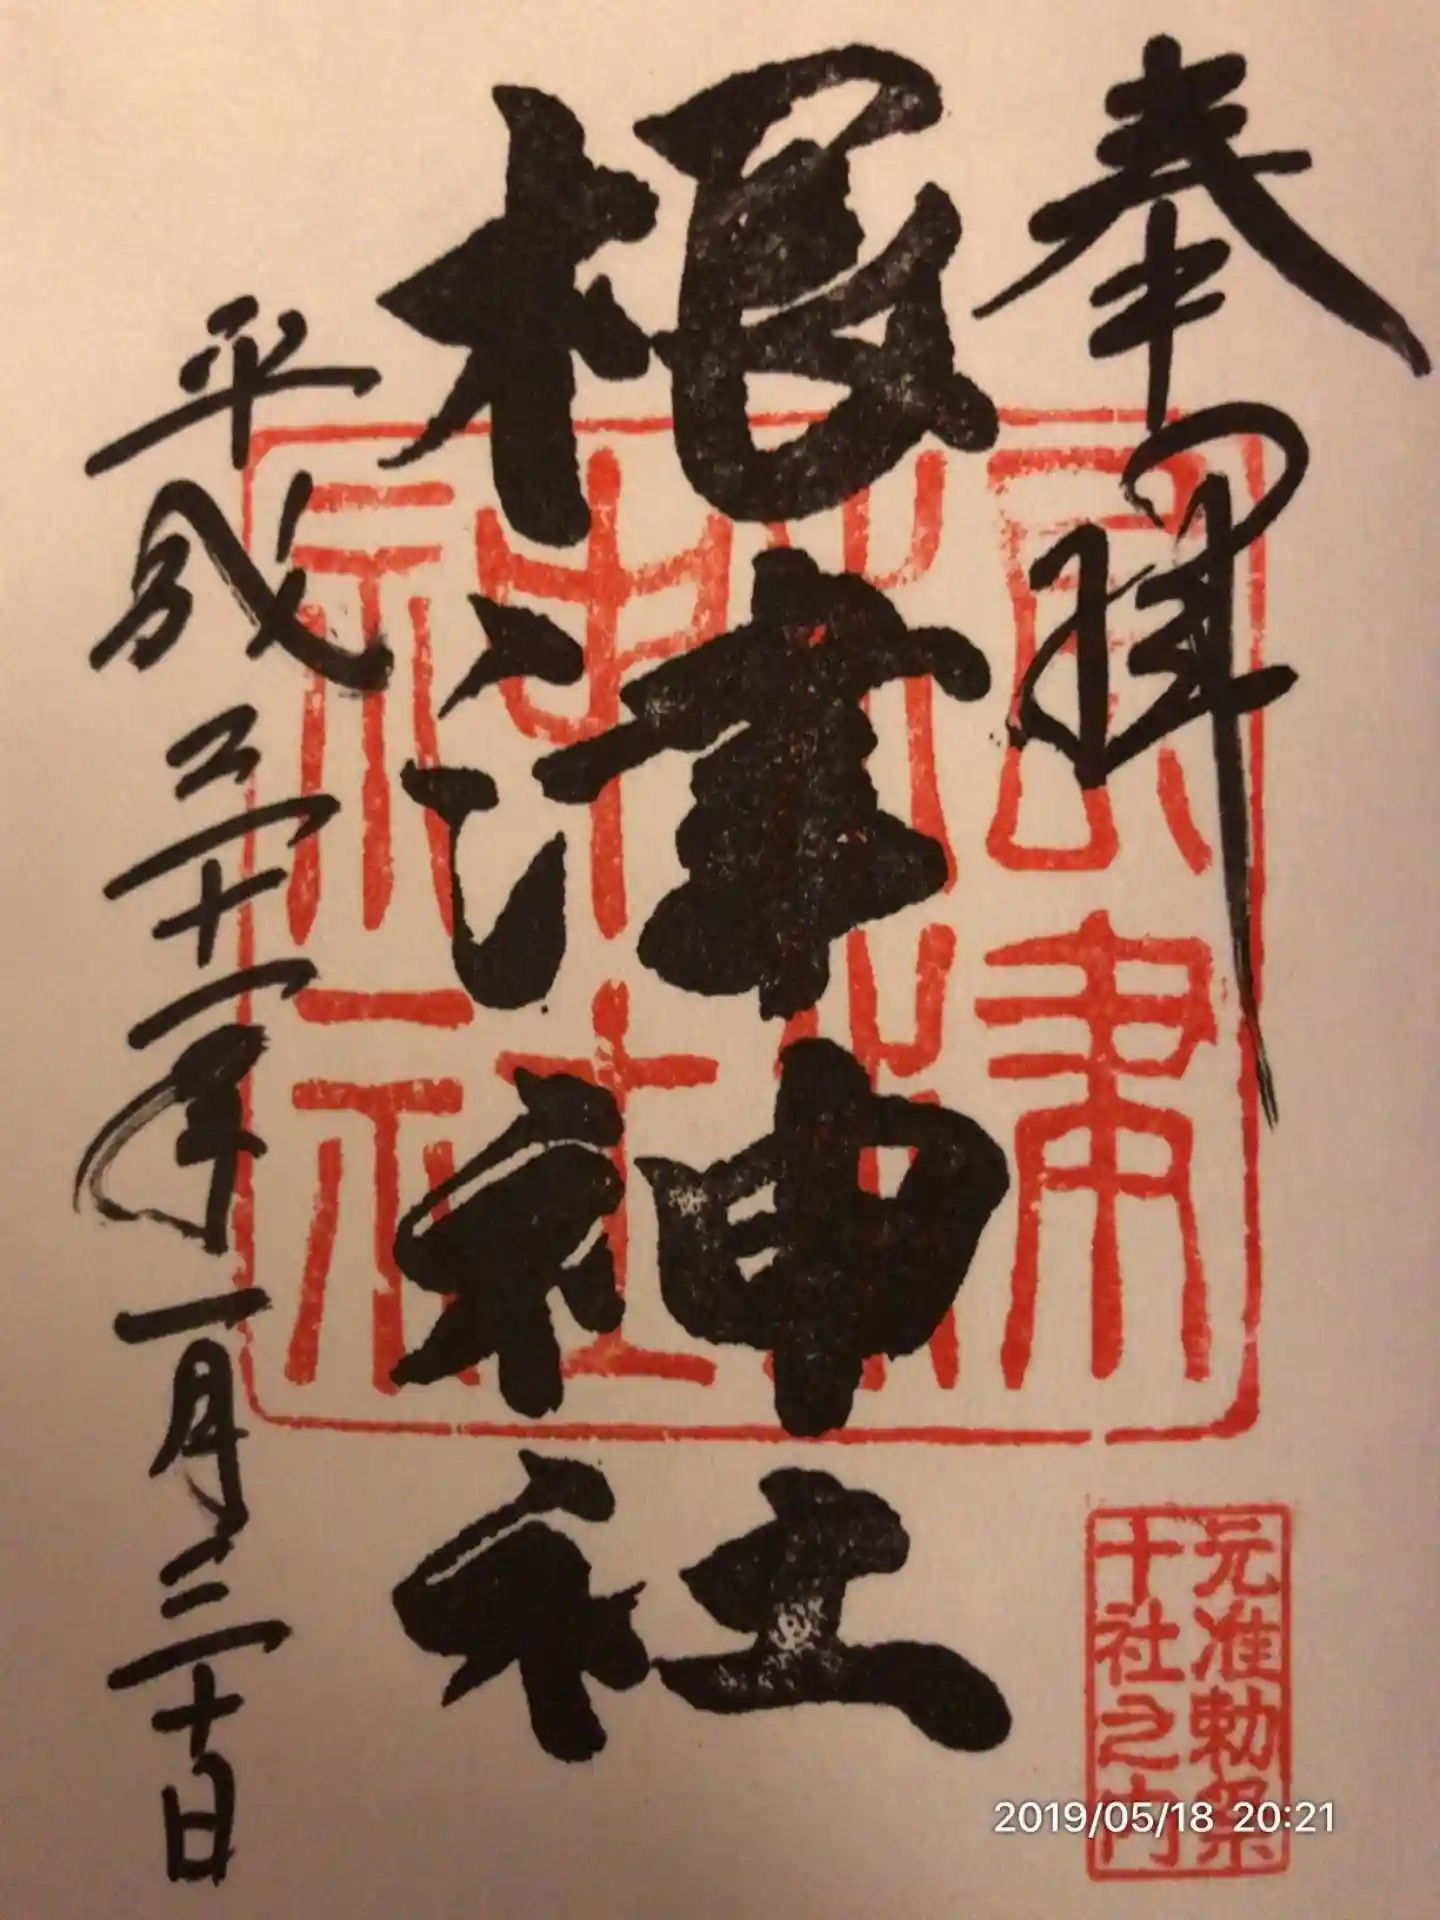 奉拜
根津神社
根津神社
平成三十一年一月三十日
元准勅祭
十社之内
2019/05/18 20:21